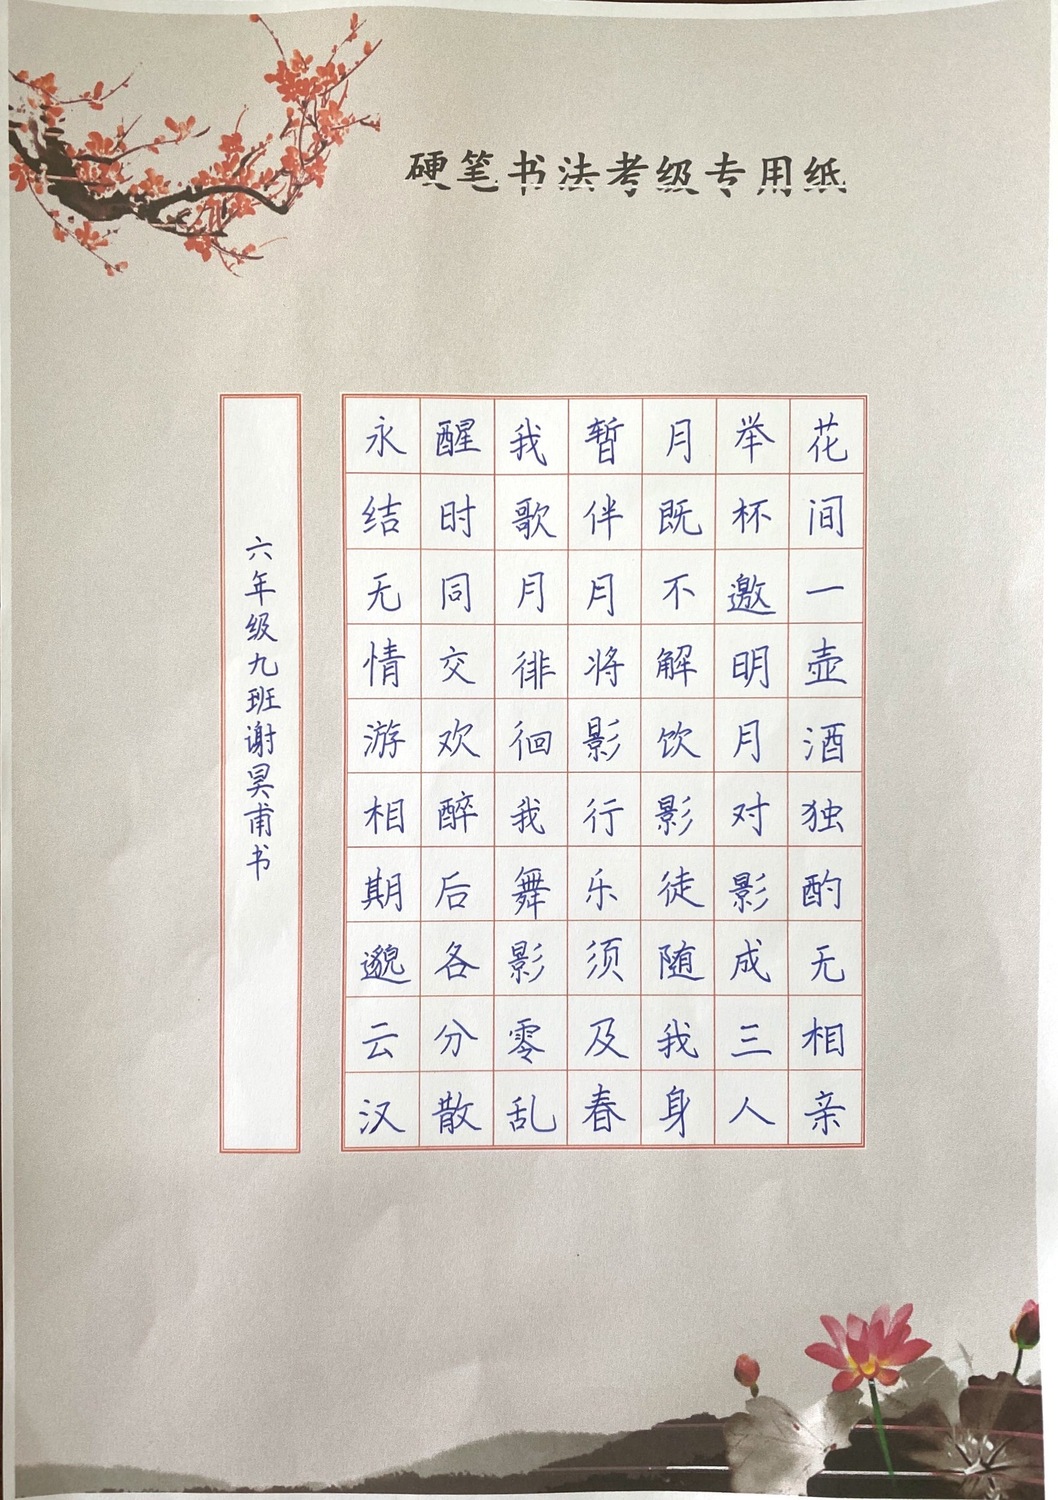 硬笔书法考级专用纸
花间一壶酒独酌无相亲
举杯邀明月对影成三人
月既不解饮影徒随我身
暂伴月将影行乐须及春
我歌月徘徊我舞影零乱
醒时同交欢醉后各分散
永结无情游相期邈云汉
六年级九班谢昊甫书